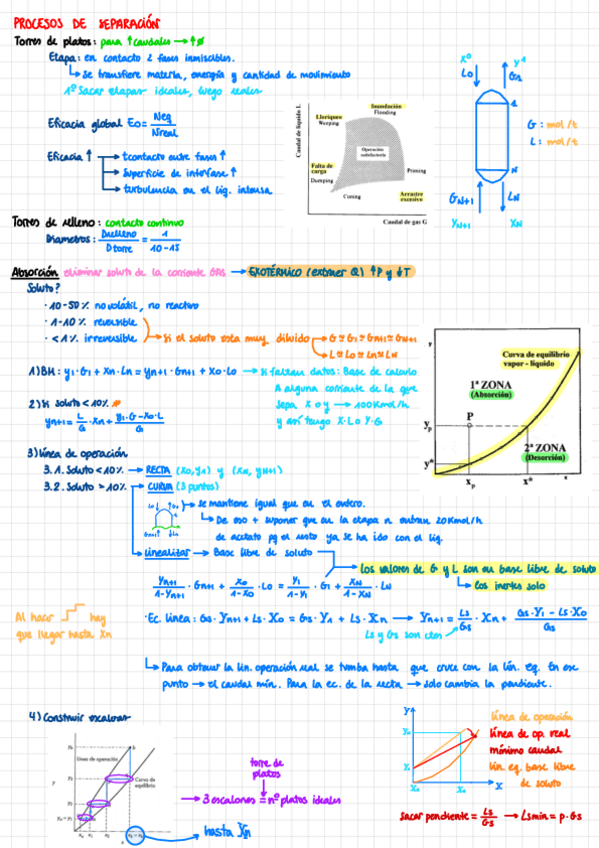 PROCESOS DE SEPARACIÓN
Torres de platos: para ↑caudales → ↑Ø
Etapa: en contacto 2 fases inmiscibles.
↳ se transfiere materia, energía y cantidad de movimiento
1º Sacar etapas ideales, luego reales
Eficacia global Eo = Neq / Nreal
Eficacia ↑ → tcontacto entre fases ↑
→ superficie de interfase ↑
→ turbulencia en el líq. intensa
Caudal de líquido L
Inundación
Flooding
Lloriqueo
Weeping
Operación
satisfactoria
Falta de
carga
Dumping
Priming
Coning
Arrastre
excesivo
Caudal de gas G
X0 Y1
L0 G1
1
N
GN+1 LN
YN+1 XN
G: mol/t
L: mol/t
Torres de relleno: contacto continuo
Diámetros: Drelleno / Dtorre = 1 / 10-15
Absorción eliminar soluto de la corriente GAS → EXOTÉRMICO (extraer Q) ↑P y ↓T
Soluto?
· 10-50% no volátil, no reactivo
· 1-10% reversible
· <1% irreversible
→ Si el soluto esta muy diluido → G ≅ G1 ≅ Gn+1 ≅ GN+1
→ L ≅ L0 ≅ Ln ≅ LN
1) BM: y1·G1 + Xn·Ln = yn+1·Gn+1 + X0·L0 → Si faltan datos: Base de calculo
A alguna corriente de la que
sepa X o y → 100 Kmol/h
y así tengo X·L o Y·G
2) Si soluto <10% *
yn+1 = L/G · Xn + (y1·G - X0·L)/G
y
Curva de equilibrio
vapor - líquido
1ª ZONA
(Absorción)
P
yp
2ª ZONA
(Desorción)
y*
xp x* x
3) línea de operación
3.1. Soluto <10% → RECTA (X0,Y1) y (XN, YN+1)
3.2. Soluto >10% → CURVA (3 puntos)
L0 G1
Gn+1 Ln
→ se mantiene igual que en el entero.
↳ De eso + suponer que en la etapa n entran 20 Kmol/h
de acetato pq el resto ya se ha ido con el líq.
→ Linealizar → Base libre de soluto
→ Los valores de G y L son en base libre de soluto
↳ los inertes solo
Yn+1/(1-Yn+1) · Gn+1 + X0/(1-X0) · L0 = Y1/(1-Y1) · G1 + XN/(1-XN) · LN
Al hacer hay
que llegar hasta Xn
·Ec. línea: Gs·Yn+1 + Ls·X0 = Gs·Y1 + Ls·Xn → Yn+1 = Ls/Gs · Xn + (Gs·Y1 - Ls·X0)/Gs
Ls y Gs son ctes
↳ Para obtener la lín. operación real se tumba hasta que cruce con la lín. eq. En ese
punto → el caudal mín. Para la ec. de la recta → solo cambia la pendiente.
4) Construir escalones
Línea de operación
Curva de
equilibrio
torre de
platos
→ 3 escalones = nº platos ideales
hasta Xn
Y
Yn
Y1
X0 Xn X
línea de operación
línea de op. real
mínimo caudal
lín. eq. base libre
de soluto
sacar pendiente = Ls/Gs → Lsmin = p·Gs